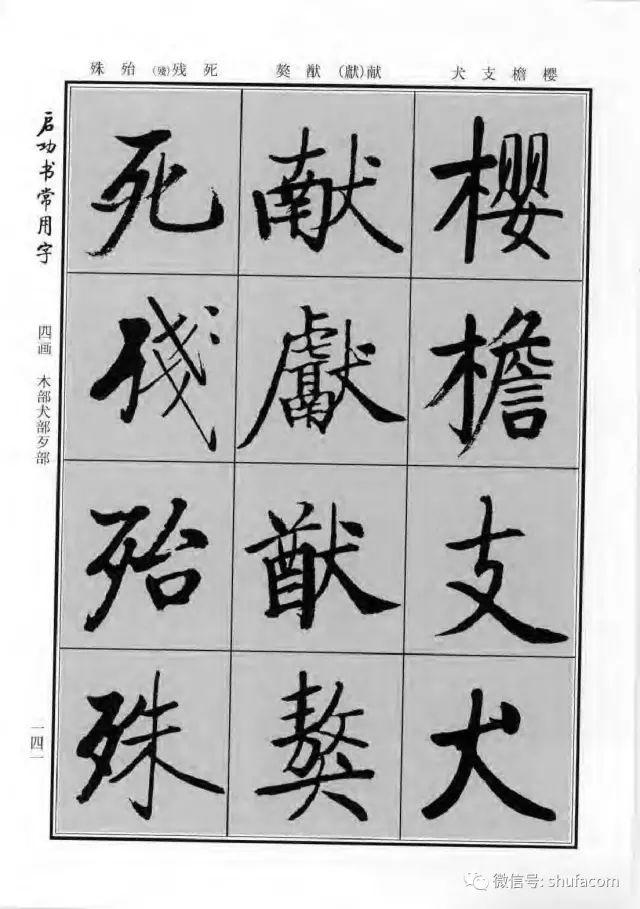 櫻檐支犬
献(獻)猷獒
死残(殘)殆殊
櫻檐支犬
献獻猷獒
死殘殆殊
启功书常用字
四画 木部犬部歹部
一四一
微信号: shufacom